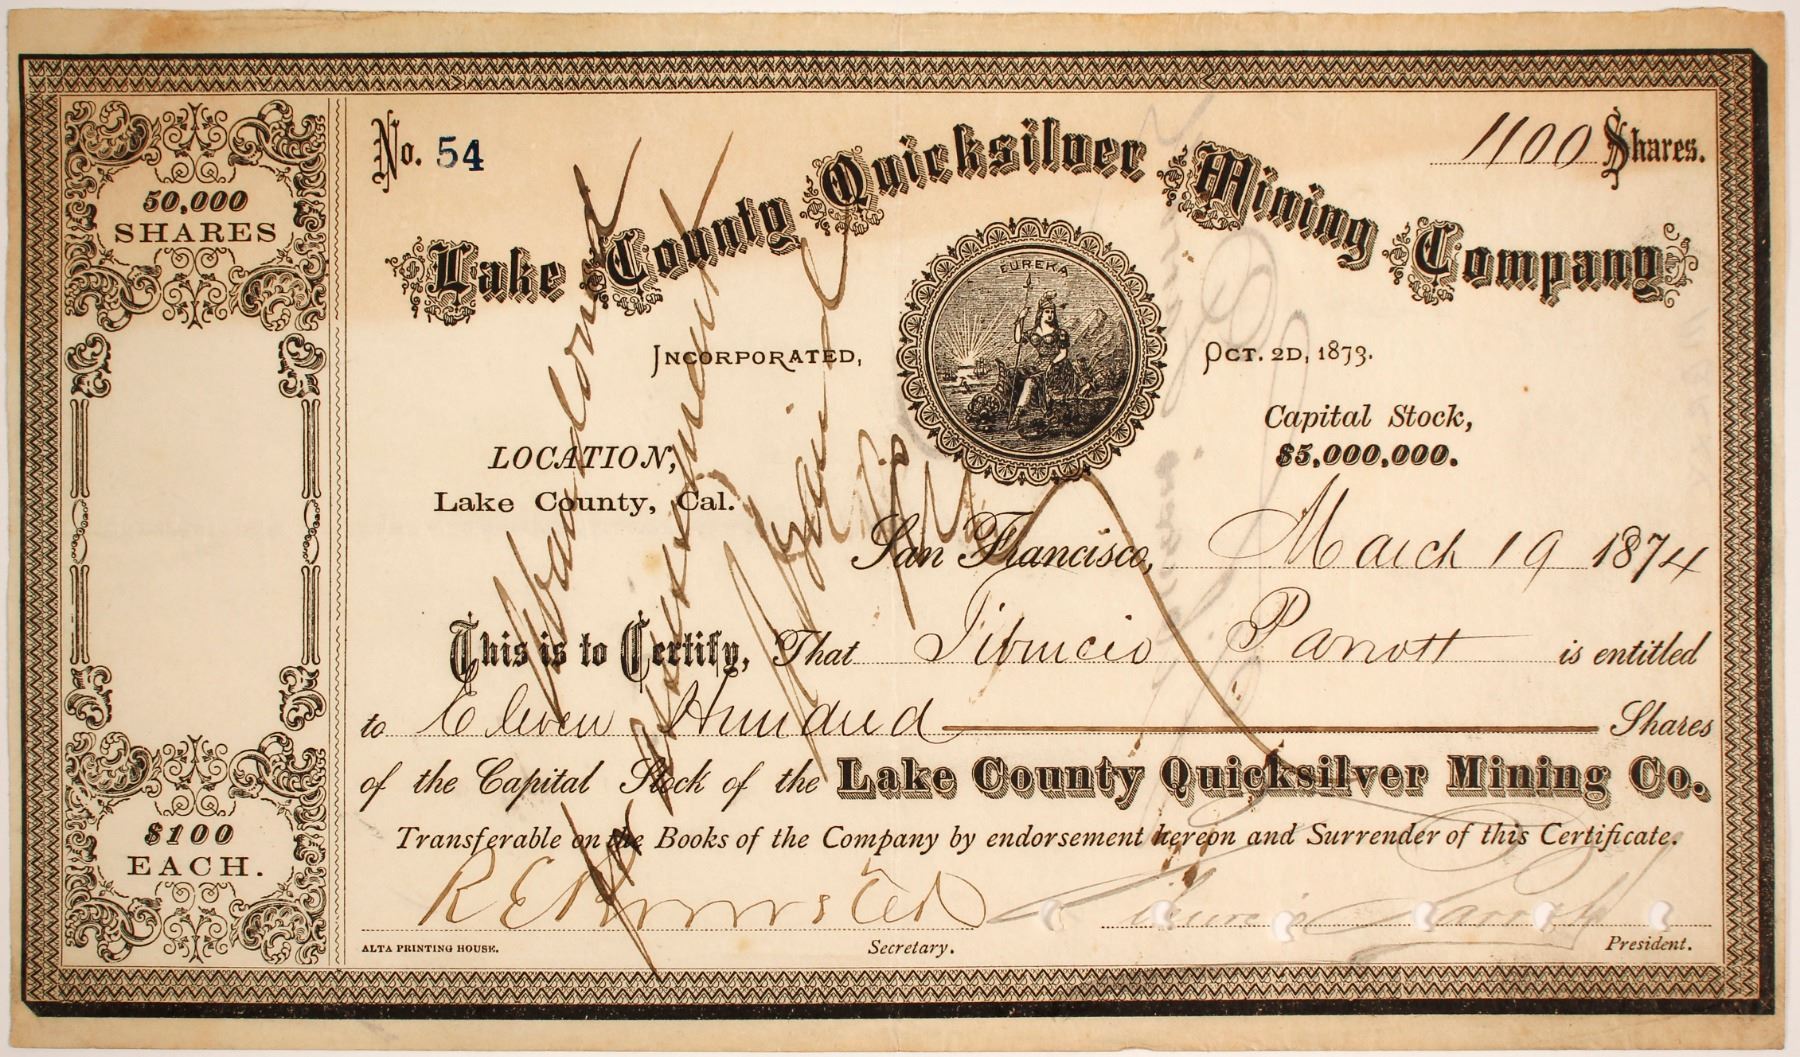 No. 54
1100 Shares.
Lake County Quicksilver Mining Company
EUREKA
INCORPORATED, OCT. 2D, 1873.
50,000
SHARES
Capital Stock,
$5,000,000.
LOCATION,
Lake County, Cal.
San Francisco, March 19 1874
This is to Certify, That Tibrucio Parrott is entitled
to Eleven Hundred Shares
of the Capital Stock of the Lake County Quicksilver Mining Co.
Transferable on the Books of the Company by endorsement hereon and Surrender of this Certificate.
$100
EACH.
Parrott
ALTA PRINTING HOUSE.
Secretary.
President.